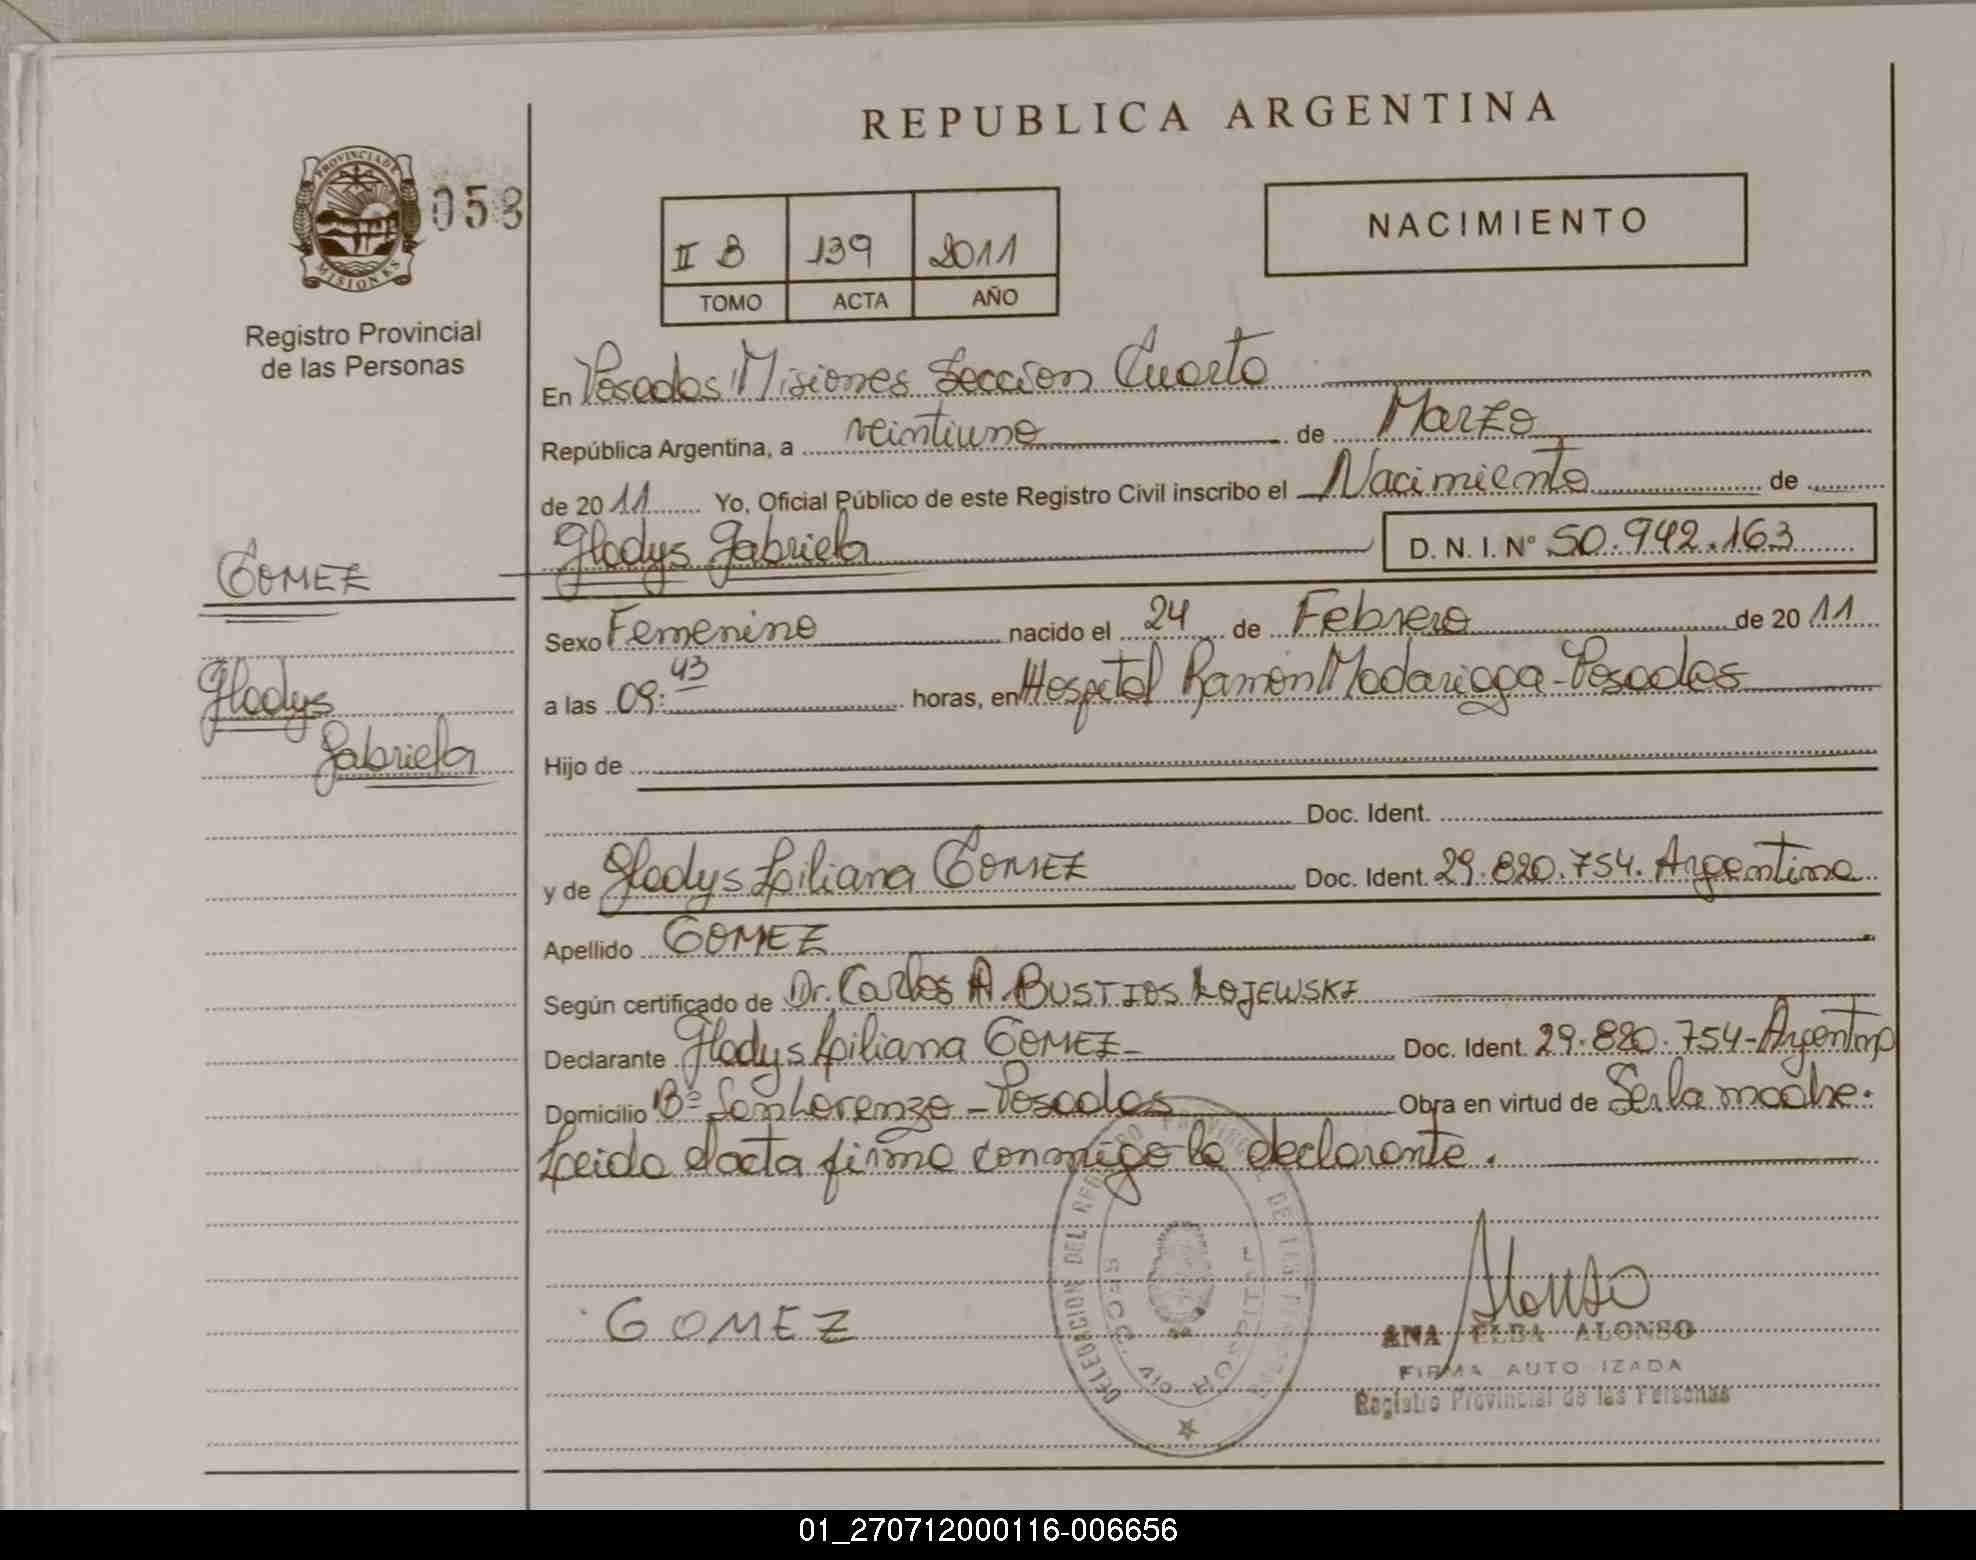 REPUBLICA ARGENTINA
PROVINCIA DE
MISIONES
053
Registro Provincial
de las Personas
II B 139 2011
TOMO ACTA AÑO
NACIMIENTO
En Posadas Misiones Seccion Cuarta
República Argentina, a veintiuno de Marzo
de 2011 Yo, Oficial Público de este Registro Civil inscribo el Nacimiento de
Gladys Gabriela D. N. I. Nº 50.942.163
GOMEZ
Gladys
Gabriela
Sexo Femenino nacido el 24 de Febrero de 2011
a las 09:43 horas, en Hospital Ramón Madariaga - Posadas
Hijo de
Doc. Ident.
y de Gladys Liliana GOMEZ Doc. Ident. 29.820.754. Argentina
Apellido GOMEZ
Según certificado de Dr. Carlos A. BUSTIOS KOJEWSKI
Declarante Gladys Liliana GOMEZ - Doc. Ident. 29.820.754-Argentina
Domicilio Bº San Lorenzo - Posadas Obra en virtud de Ser la madre.
Leida el acta firma conmigo la declarante.
DELEGACION DEL REGISTRO PROVINCIAL DE LAS PERSONAS
SECC. 4ta HOSPITAL
GOMEZ
Alonso
ANA ELBA ALONSO
FIRMA AUTORIZADA
Registro Provincial de las Personas
01_270712000116-006656